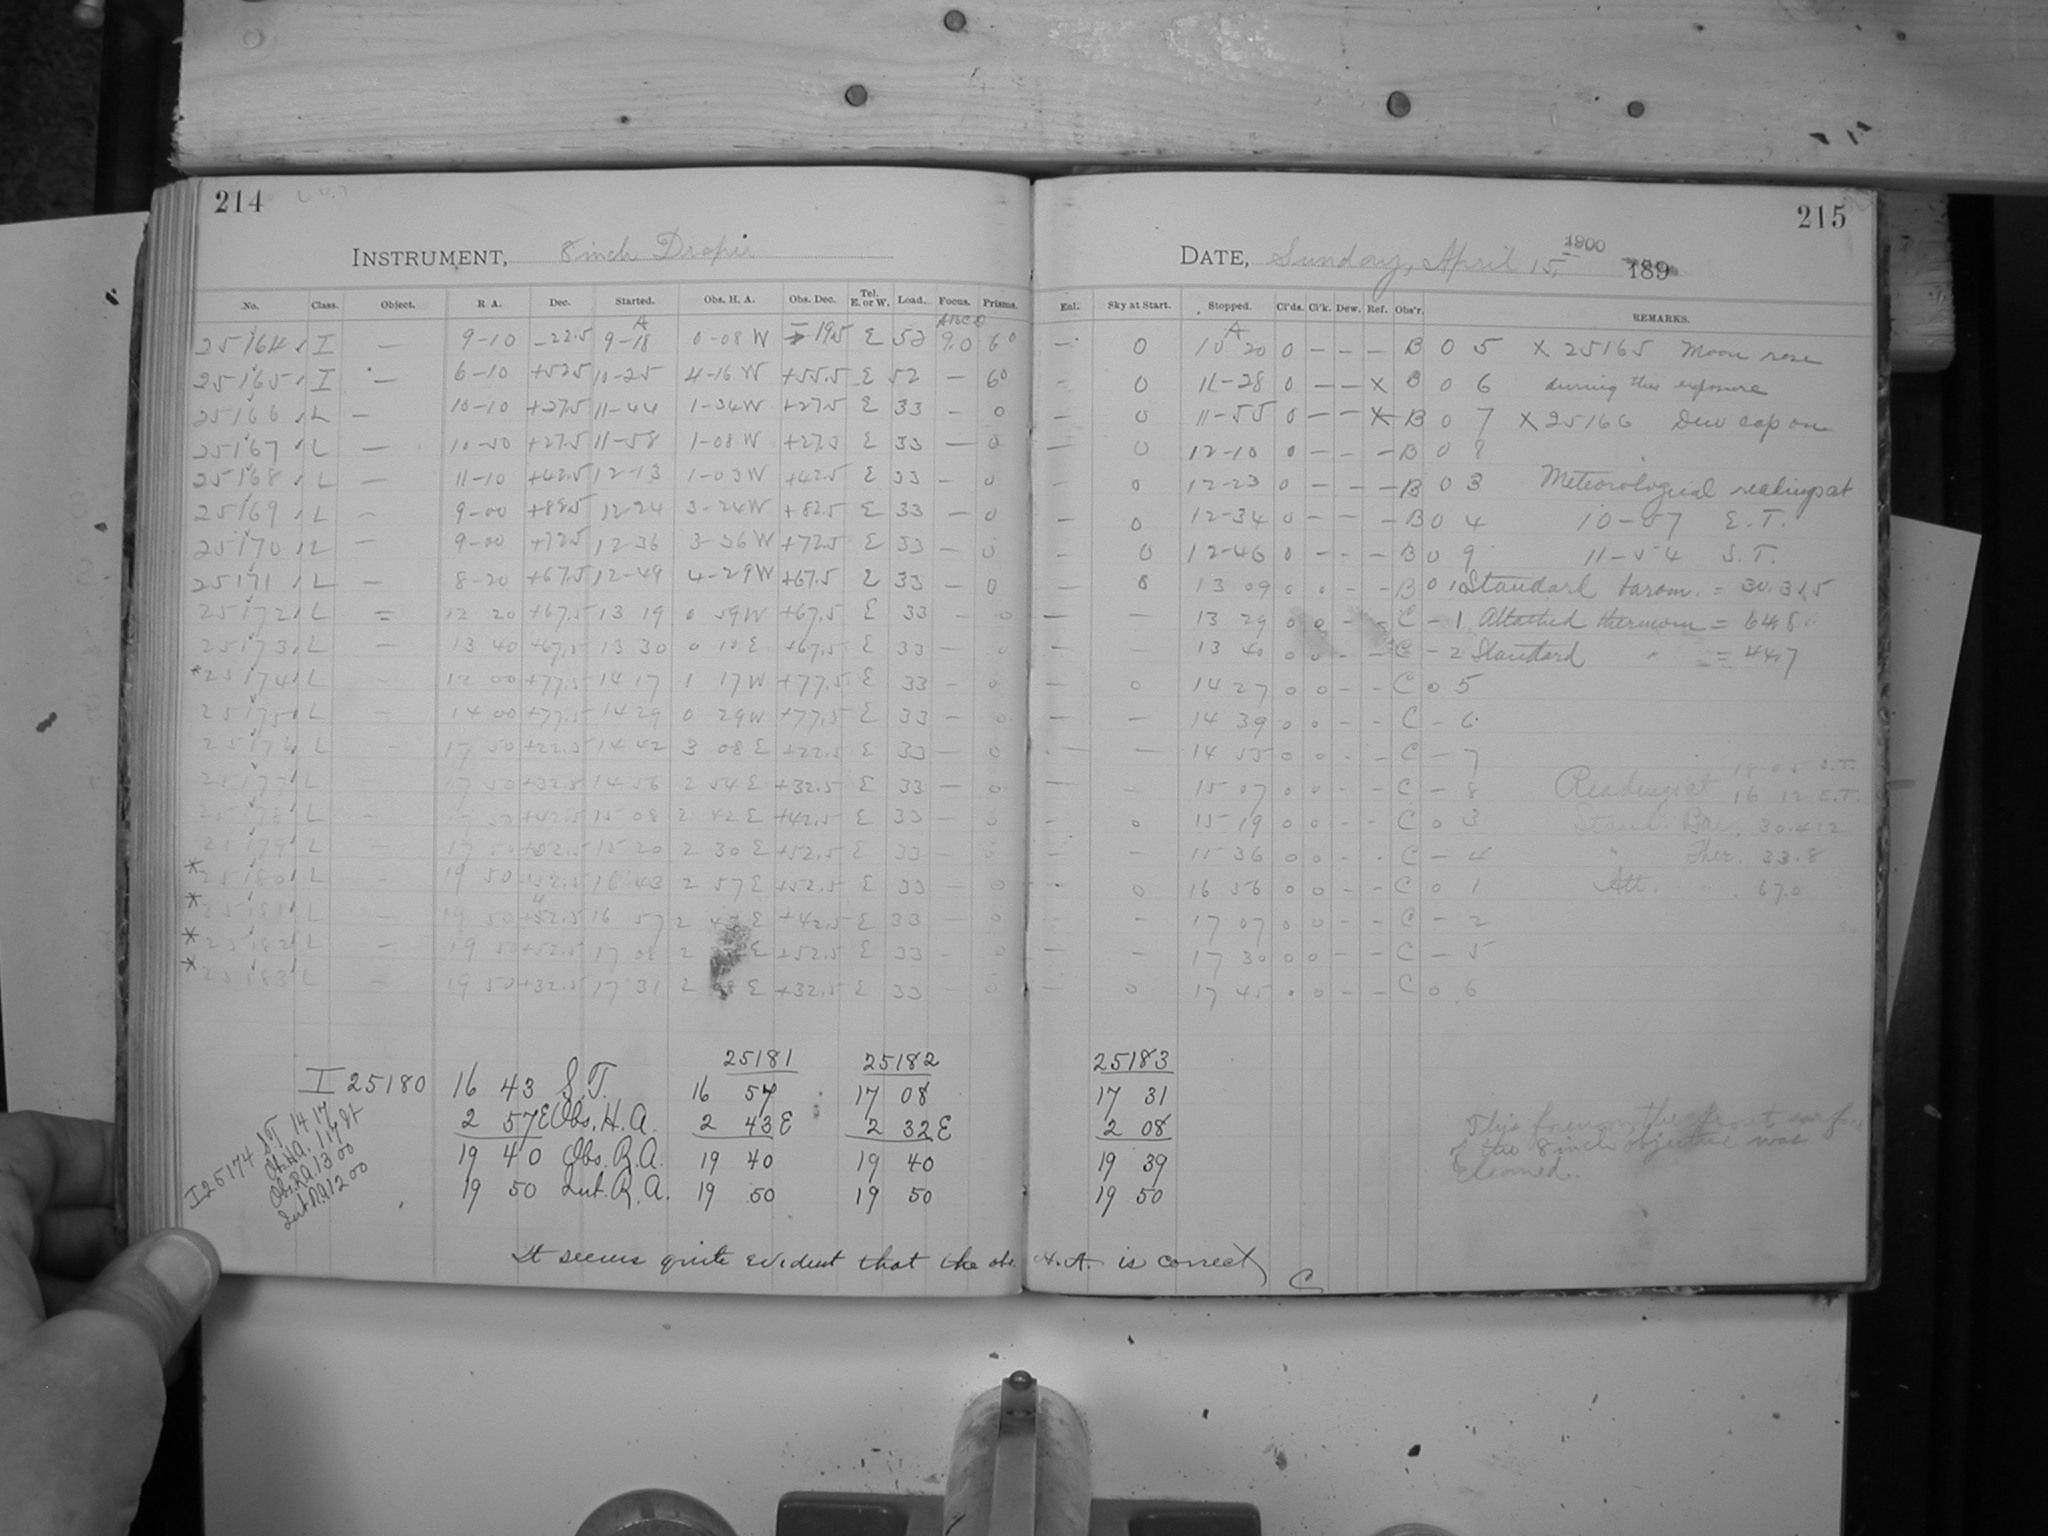 214
INSTRUMENT, 8 inch Draper
No. Class. Object. R. A. Dec. Started. Obs. H. A. Obs. Dec. Tel. E. or W. Load. Focus. Prisms.
25164 I — 9-10 -22.5 9-18 0-08 W -19.5 E 52 9.0 6°
25165 I — 6-10 +52.5 10-25 4-16 W +55.5 E 52 — 6°
25166 L — 10-10 +27.5 11-44 1-34 W +27.5 E 33 - 0
25167 L — 10-50 +27.5 11-58 1-08 W +27.5 E 33 — 0
25168 L — 11-10 +42.5 12-13 1-03 W +42.5 E 33 - 0
25169 L — 9-00 +82.5 12-24 3-24 W +82.5 E 33 — 0
25170 L — 9-00 +72.5 12-36 3-36 W +72.5 E 33 — 0
25171 L — 8-20 +67.5 12-49 4-29 W +67.5 E 33 — 0
25172 L = 12 20 +67.5 13 19 0 59 W +67.5 E 33 - 0
25173 L — 13 40 +67.5 13 30 0 10 E +67.5 E 33 — 0
*25174 L - 12 00 +77.5 14 17 1 17 W +77.5 E 33 - 0
25175 L - 14 00 +77.5 14 29 0 29 W +77.5 E 33 - 0
25176 L - 17 50 +22.5 14 42 3 08 E +22.5 E 33 — 0
25177 L - 17 50 +32.5 14 56 2 54 E +32.5 E 33 — 0
25178 L - 17 50 +42.5 15 08 2 42 E +42.5 E 33 - 0
25179 L - 17 50 +52.5 15 20 2 30 E +52.5 E 33 - 0
*25180 L - 19 50 +52.5 16 43 2 57 E +52.5 E 33 — 0
*25181 L - 19 50 +42.5 16 57 2 43 E +42.5 E 33 — 0
*25182 L - 19 50 +52.5 17 08 2 E +52.5 E 33 - 0
*25183 L - 19 50 +32.5 17 31 2 08 E +32.5 E 33 - 0
25181 25182
I 25180 16 43 S.T. 16 57 17 08
2 57 E Obs. H.A. 2 43 E 2 32 E
19 40 Obs. R.A. 19 40 19 40
19 50 Int. R.A. 19 50 19 50
I 25174 S.T. 14 17
Ob. H.A. 1 17 W
Obs. R.A. 13 00
Int. R.A. 12 00
It seems quite evident that the obs. H.A. is correct C
215
DATE, Sunday, April 15, 1900 189
Enl. Sky at Start. Stopped. Cl'ds. Cl'k. Dew. Ref. Obs'r. REMARKS.
— 0 10 20 0 - - - B 0 5 X 25165 Moon rose
- 0 11-28 0 - - X B 0 6 during this exposure
- 0 11-55 0 - - X B 0 7 X 25166 Dew cap on
- 0 12-10 0 - - - B 0 8
- 0 12-23 0 - - - B 0 3 Meteorological readings at
— 0 12-34 0 - - - B 0 4 10-07 E.T.
— 0 12-46 0 - - - B 0 9 11-54 S.T.
— 0 13 09 0 0 - - B 0 1 Standard barom. = 30.315
— — 13 29 0 0 - - C - 1 Attached thermom = 64.8
— — 13 40 0 0 - - C - 2 Standard " = 44.7
- 0 14 27 0 0 - - C 0 5
- — 14 39 0 0 - - C - 6
- — 14 55 0 0 - - C - 7
— - 15 07 0 0 - - C - 8 Readings at 16 12 E.T.
— 0 15 19 0 0 - - C 0 3 Stand. Bar. 30.412
— - 15 36 0 0 - - C - 4 " Ther. 33.8
— 0 16 56 0 0 - - C 0 1 Att. " 67.0
— - 17 07 0 0 - - C - 2
— - 17 30 0 0 - - C - 5
— 0 17 45 0 0 - - C 0 6
25183
17 31
2 08
19 39
19 50
This forenoon the front surface
of the 8 inch objective was
cleaned.